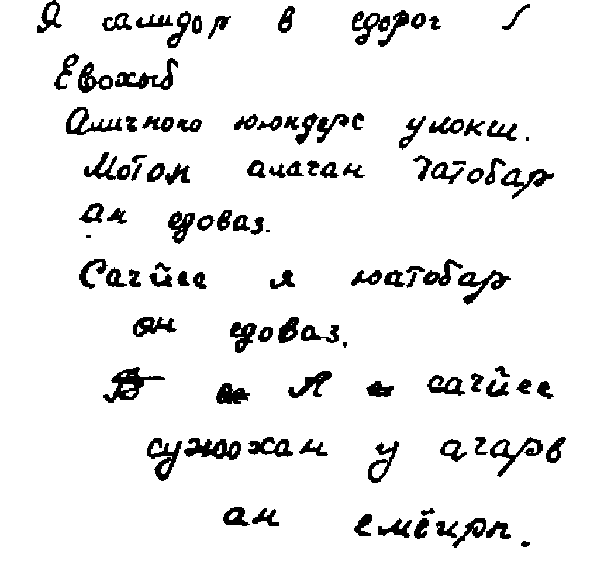 Я салидор в едорог
Евохыб
Аличноко ююндерс улокш.
Мотоп алачан татобар
ан едоваз.
Сачйес я юатобар
ан едоваз.
А сачйес
у ачарв
ан емёирп.